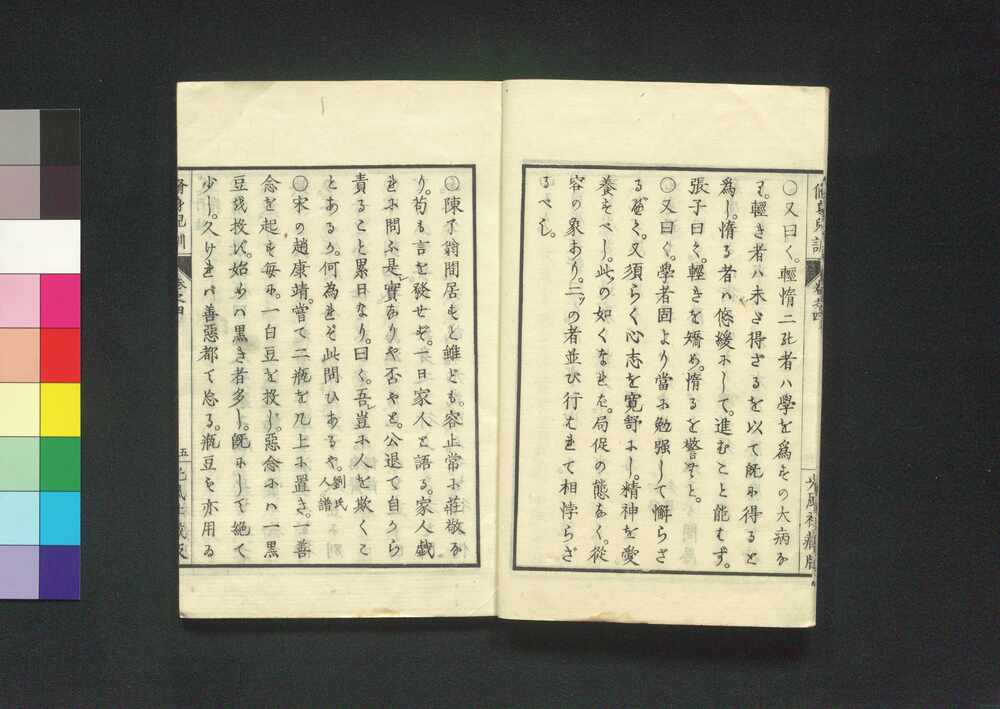 〇又曰く。輕惰二ツ者ハ學を為すの大病な
り。輕き者ハ未だ得ざるを以て既に得ると
為し。惰る者ハ悠緩にして。進むこと能はず。
張子曰く。輕きを矯め。惰るを警むと。
〇又曰く。學者固より當に勉强して懈らざ
るべく。又須らく心志を寛舒にし。精神を愛
養すべし。此の如くなれば。局促の態なく。從
容の象あり。二ツの者並び行はれて相悖らざ
るべし。
〇陳了翁間居すと雖ども。容止常に莊敬な
り。苟も言を發せず。一日家人と語る。家人戯
れに問ふ是レ實ありや否やと。公退て自うら
責ること累日なり。曰く。吾レ豈に人を欺くこ
とあるう。何為れぞ此問ひあるや。劉氏人譜
〇宋の趙康靖。嘗て二瓶を几上に置き。一善
念を起す毎に。一白豆を投じ。惡念にハ一黒
豆を投ず。始めハ黒き者多し。既にして絶て
少し。久けれバ善惡都て忘る。瓶豆も亦用ゐ
脩身兒訓
卷之四
五